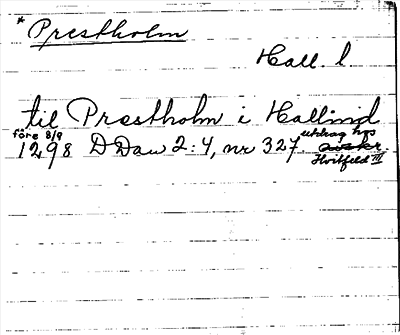 * Prestholm
Hall l
til Præstholm i Halland
före 8/9
1298 DDan 2:4, nr 327. utdrag hos
Hvitfeld III